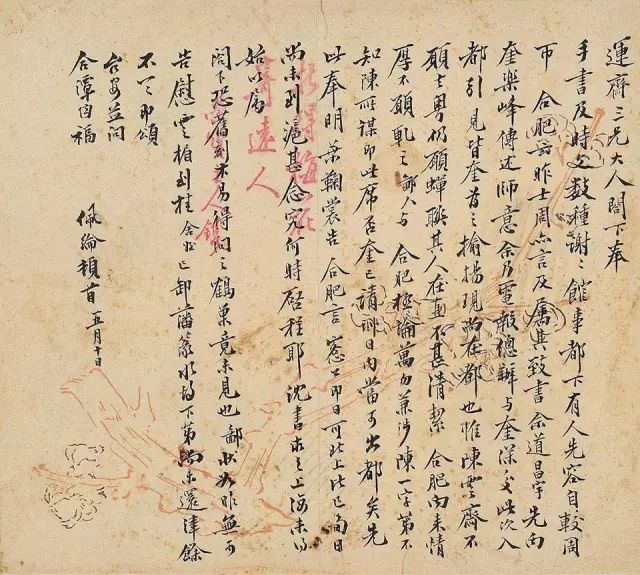 運齋三兄大人閣下奉
手書及時文數種謝謝館事都下有人先容自較周
帀合肥前昨士周亦言及屬其致書余道昌宇先向
奎樂峰傳述師意余乃電報總辦與奎深交此次入
都引見皆奎為之揄揚現尚在都也惟陳雲齋不
願去粵仍願蟬聯其人在直不甚清潔合肥向來情
厚不願軋之鄙人與合肥極論萬勿兼涉陳一字第不
知陳所謀即此席否奎已請訓日內當可出都矣先
此奉明葉鞠裳告合肥言窓公即日可北上比已旬日
尚未到滬甚念究何時啟程耶沈書求之上海未得
始以屬
閣下恐舊刻未易得詢之鶴巢竟未見也鄙狀如昨無可
告慰雲楣到桂已卸藩篆下第尚未還津餘
不一即頌
台安並問
合潭曰福
佩綸頓首五月十日
遠人